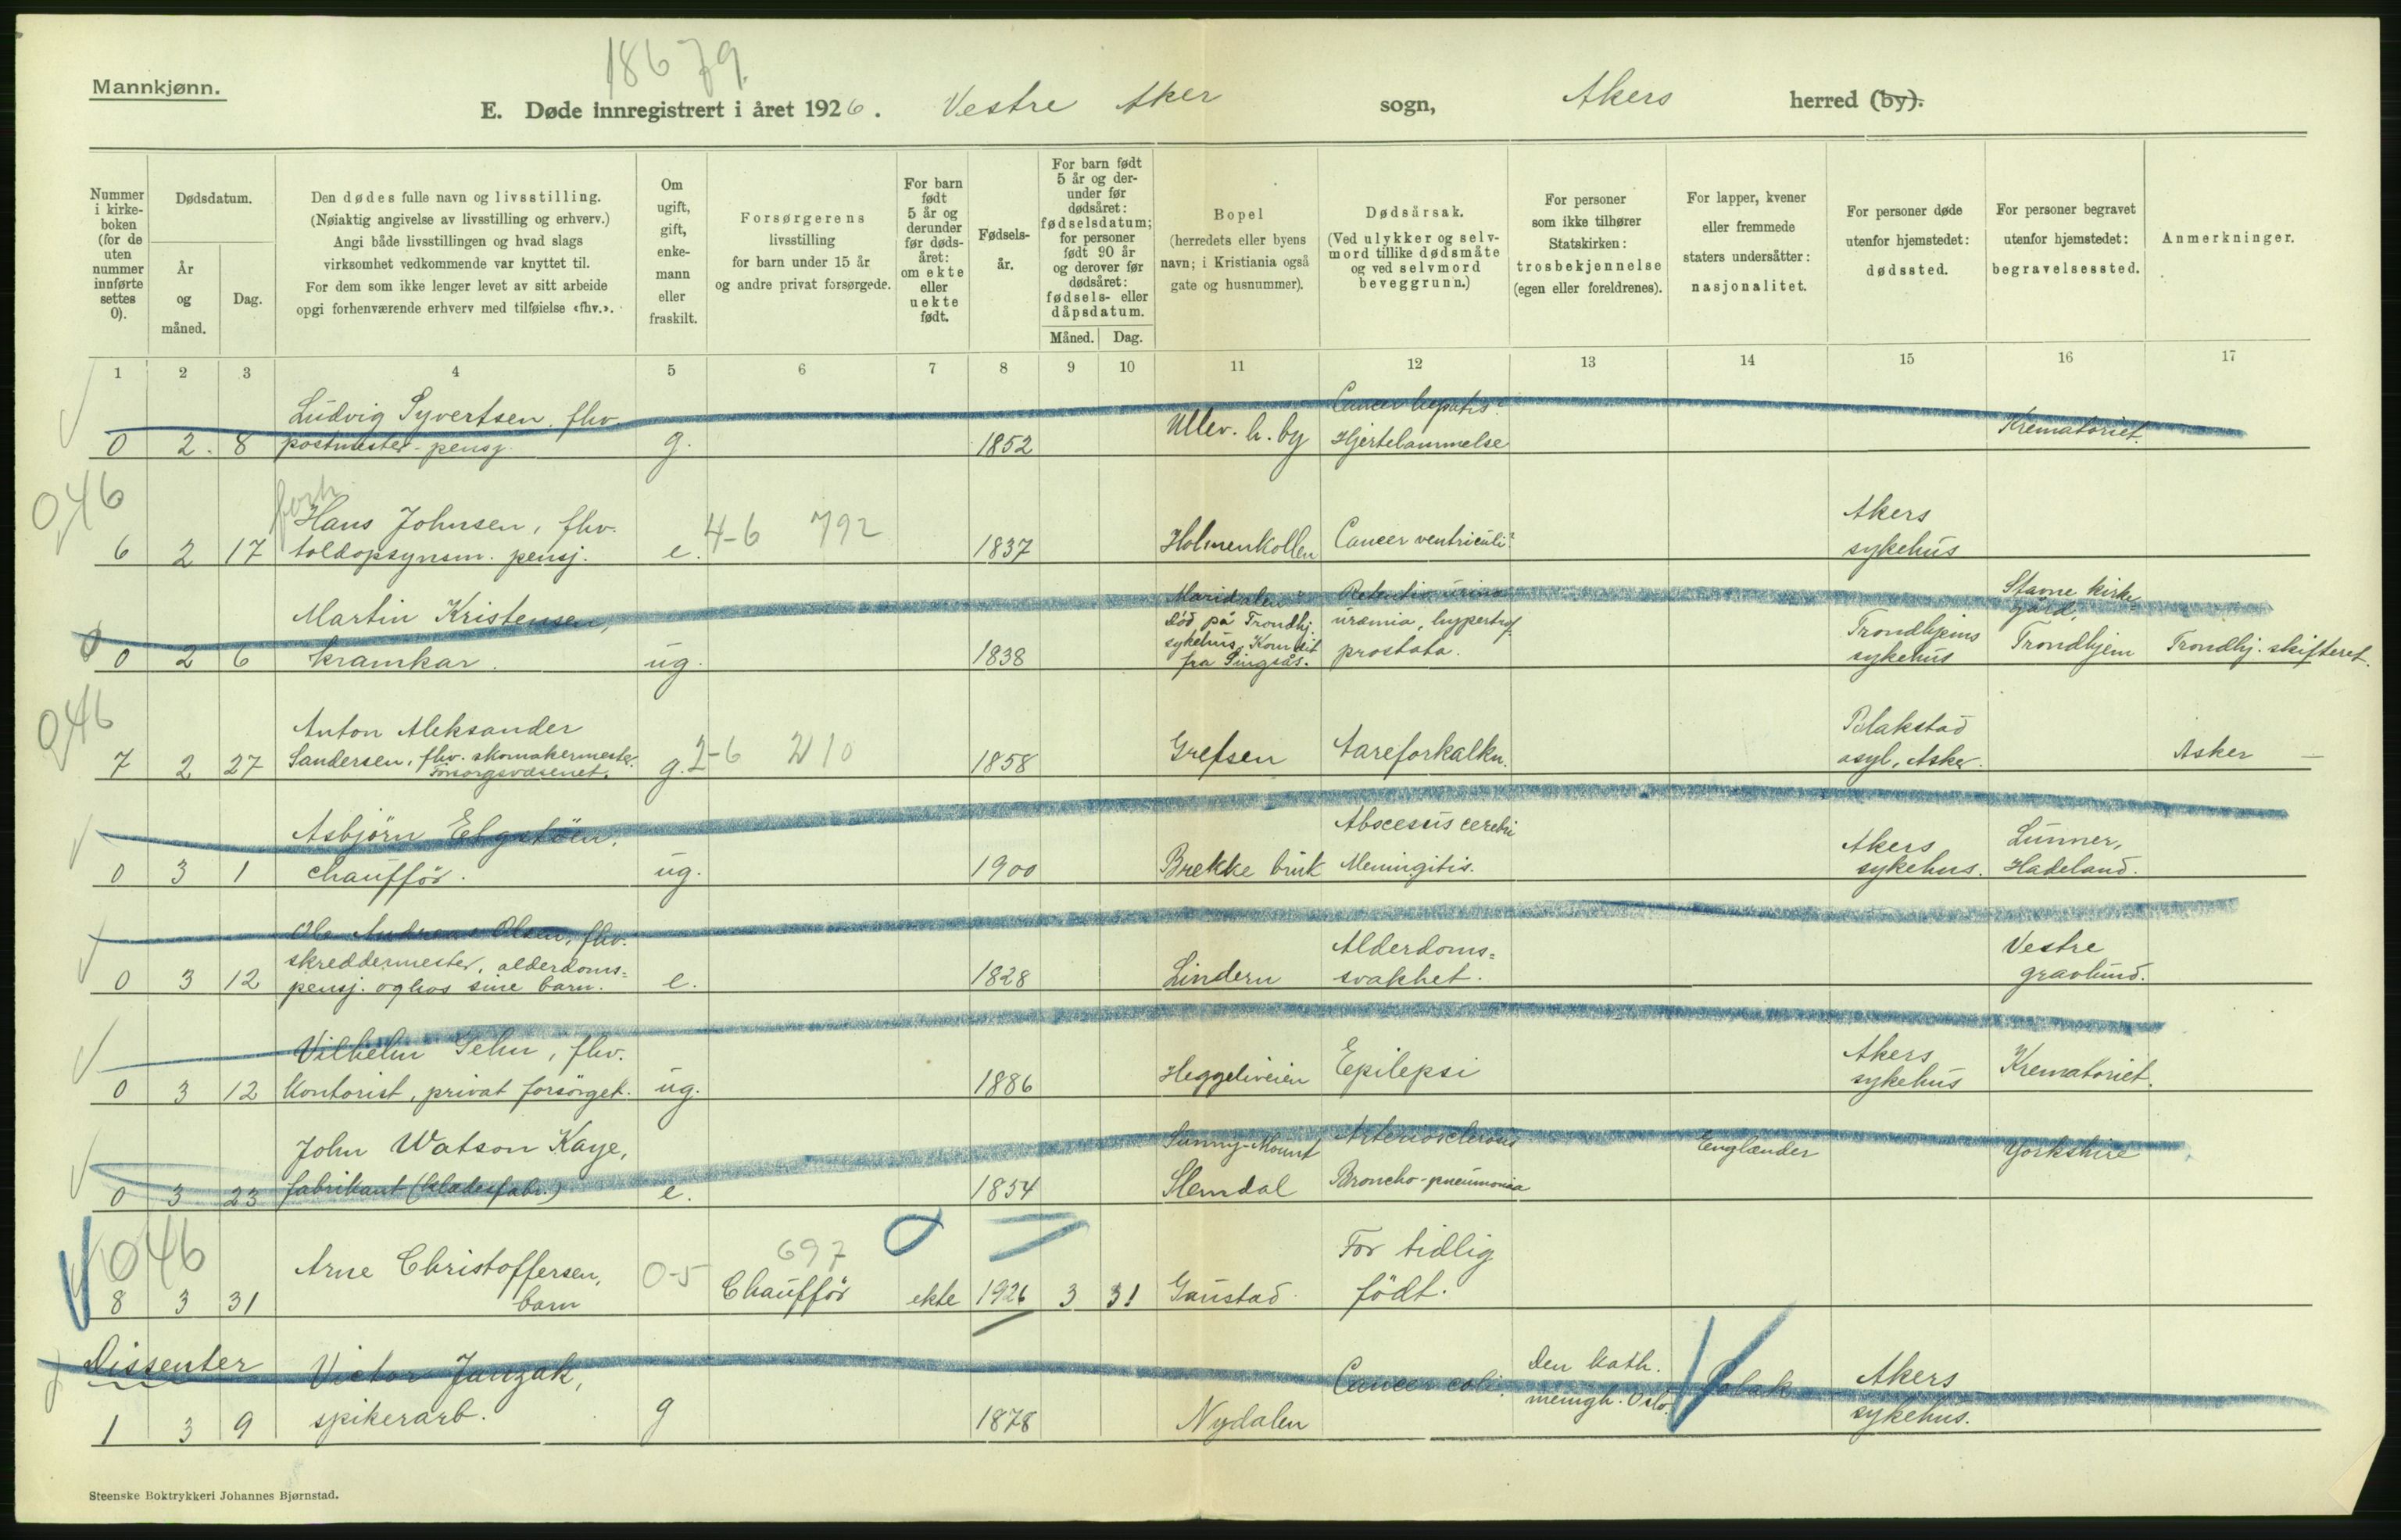 18679.
Mannkjønn.
E. Døde innregistrert i året 1926. Vestre Aker sogn, Akers herred (by).
Nummer i kirke-boken (for de uten nummer innførte settes 0).
Dødsdatum.
År og måned.
Dag.
Den dødes fulle navn og livsstilling.
(Nøiaktig angivelse av livsstilling og erhverv.)
Angi både livsstillingen og hvad slags
virksomhet vedkommende var knyttet til.
For dem som ikke lenger levet av sitt arbeide
opgi forhenværende erhverv med tilføielse «fhv.».
Om ugift, gift, enke-mann eller fraskilt.
Forsørgerens
livsstilling
for barn under 15 år
og andre privat forsørgede.
For barn født 5 år og derunder før døds-året: om ekte eller uekte født.
Fødsels-år.
For barn født 5 år og der-under før dødsåret: fødselsdatum; for personer født 90 år og derover før dødsåret: fødsels- eller dåpsdatum.
Måned. Dag.
Bopel
(herredets eller byens
navn; i Kristiania også
gate og husnummer).
Dødsårsak.
(Ved ulykker og selv-
mord tillike dødsmåte
og ved selvmord
beveggrunn.)
For personer
som ikke tilhører
Statskirken:
trosbekjennelse
(egen eller foreldrenes).
For lapper, kvener
eller fremmede
staters undersåtter:
nasjonalitet.
For personer døde
utenfor hjemstedet:
dødssted.
For personer begravet
utenfor hjemstedet:
begravelsessted.
Anmerkninger.
1 2 3 4 5 6 7 8 9 10 11 12 13 14 15 16 17
Ludvig Syvertsen, fhv. Cancer hepatis?
0 2. 8 postmester-pensj. g. 1852 Ullev. h. by Hjertelammelse Krematoriet.
046 forh
Hans Johnsen, fhv. 4-6 792 Akers
6 2 17 toldopsynsm. pensj. e. 1837 Holmenkollen Cancer ventriculi? sykehus
Martin Kristensen, Maridalen Retentio urina Stavne kirke-
Död på Trondhj. uræmia, hypertrof. gård,
0 2 6 kramkar. ug. 1838 sykehus. Kom dit prostata. Trondhjems Trondhjem Trondhj. skifteret.
fra Singsås. sykehus
046
Anton Aleksander Blakstad
Sandersen, fhv. skomakermester. 2-6 210
7 2 27 Forsorgsvæsenet. g. 1858 Grefsen Aareforkalkn. asyl, Asker. Asker —
Asbjörn Elgstöen, Abscessus cerebri Akers Lunner,
0 3 1 chaufför. ug. 1900 Brekke bruk Meningitis. sykehus. Hadeland.
Ole Andreas Olsen, fhv.
skreddermester, alderdoms= Alderdoms= Vestre
0 3 12 pensj. og hos sine barn. e. 1828 Lindern svakhet. gravlund.
Vilhelm Sehn, fhv. Akers
0 3 12 Kontorist, privat forsörget. ug. 1886 Heggeliveien Epilepsi sykehus Krematoriet.
John Watson Kaye, Sunny-Mount Arteriosclerosis Englænder Yorkshire
0 3 23 fabrikant (klædesfabr.) e. 1854 Slemdal Broncho-pneumonia
046
Arne Christoffersen, 0-5 697 For tidlig
8 3 31 barn Chaufför ekte 1926 3 31 Gaustad födt.
Dissenter Victor Janzak, Cancer coli. Den kath. Polak Akers
menigh. Oslo.
1 3 9 spikerarb. g 1878 Nydalen sykehus.
Steenske Boktrykkeri Johannes Bjørnstad.